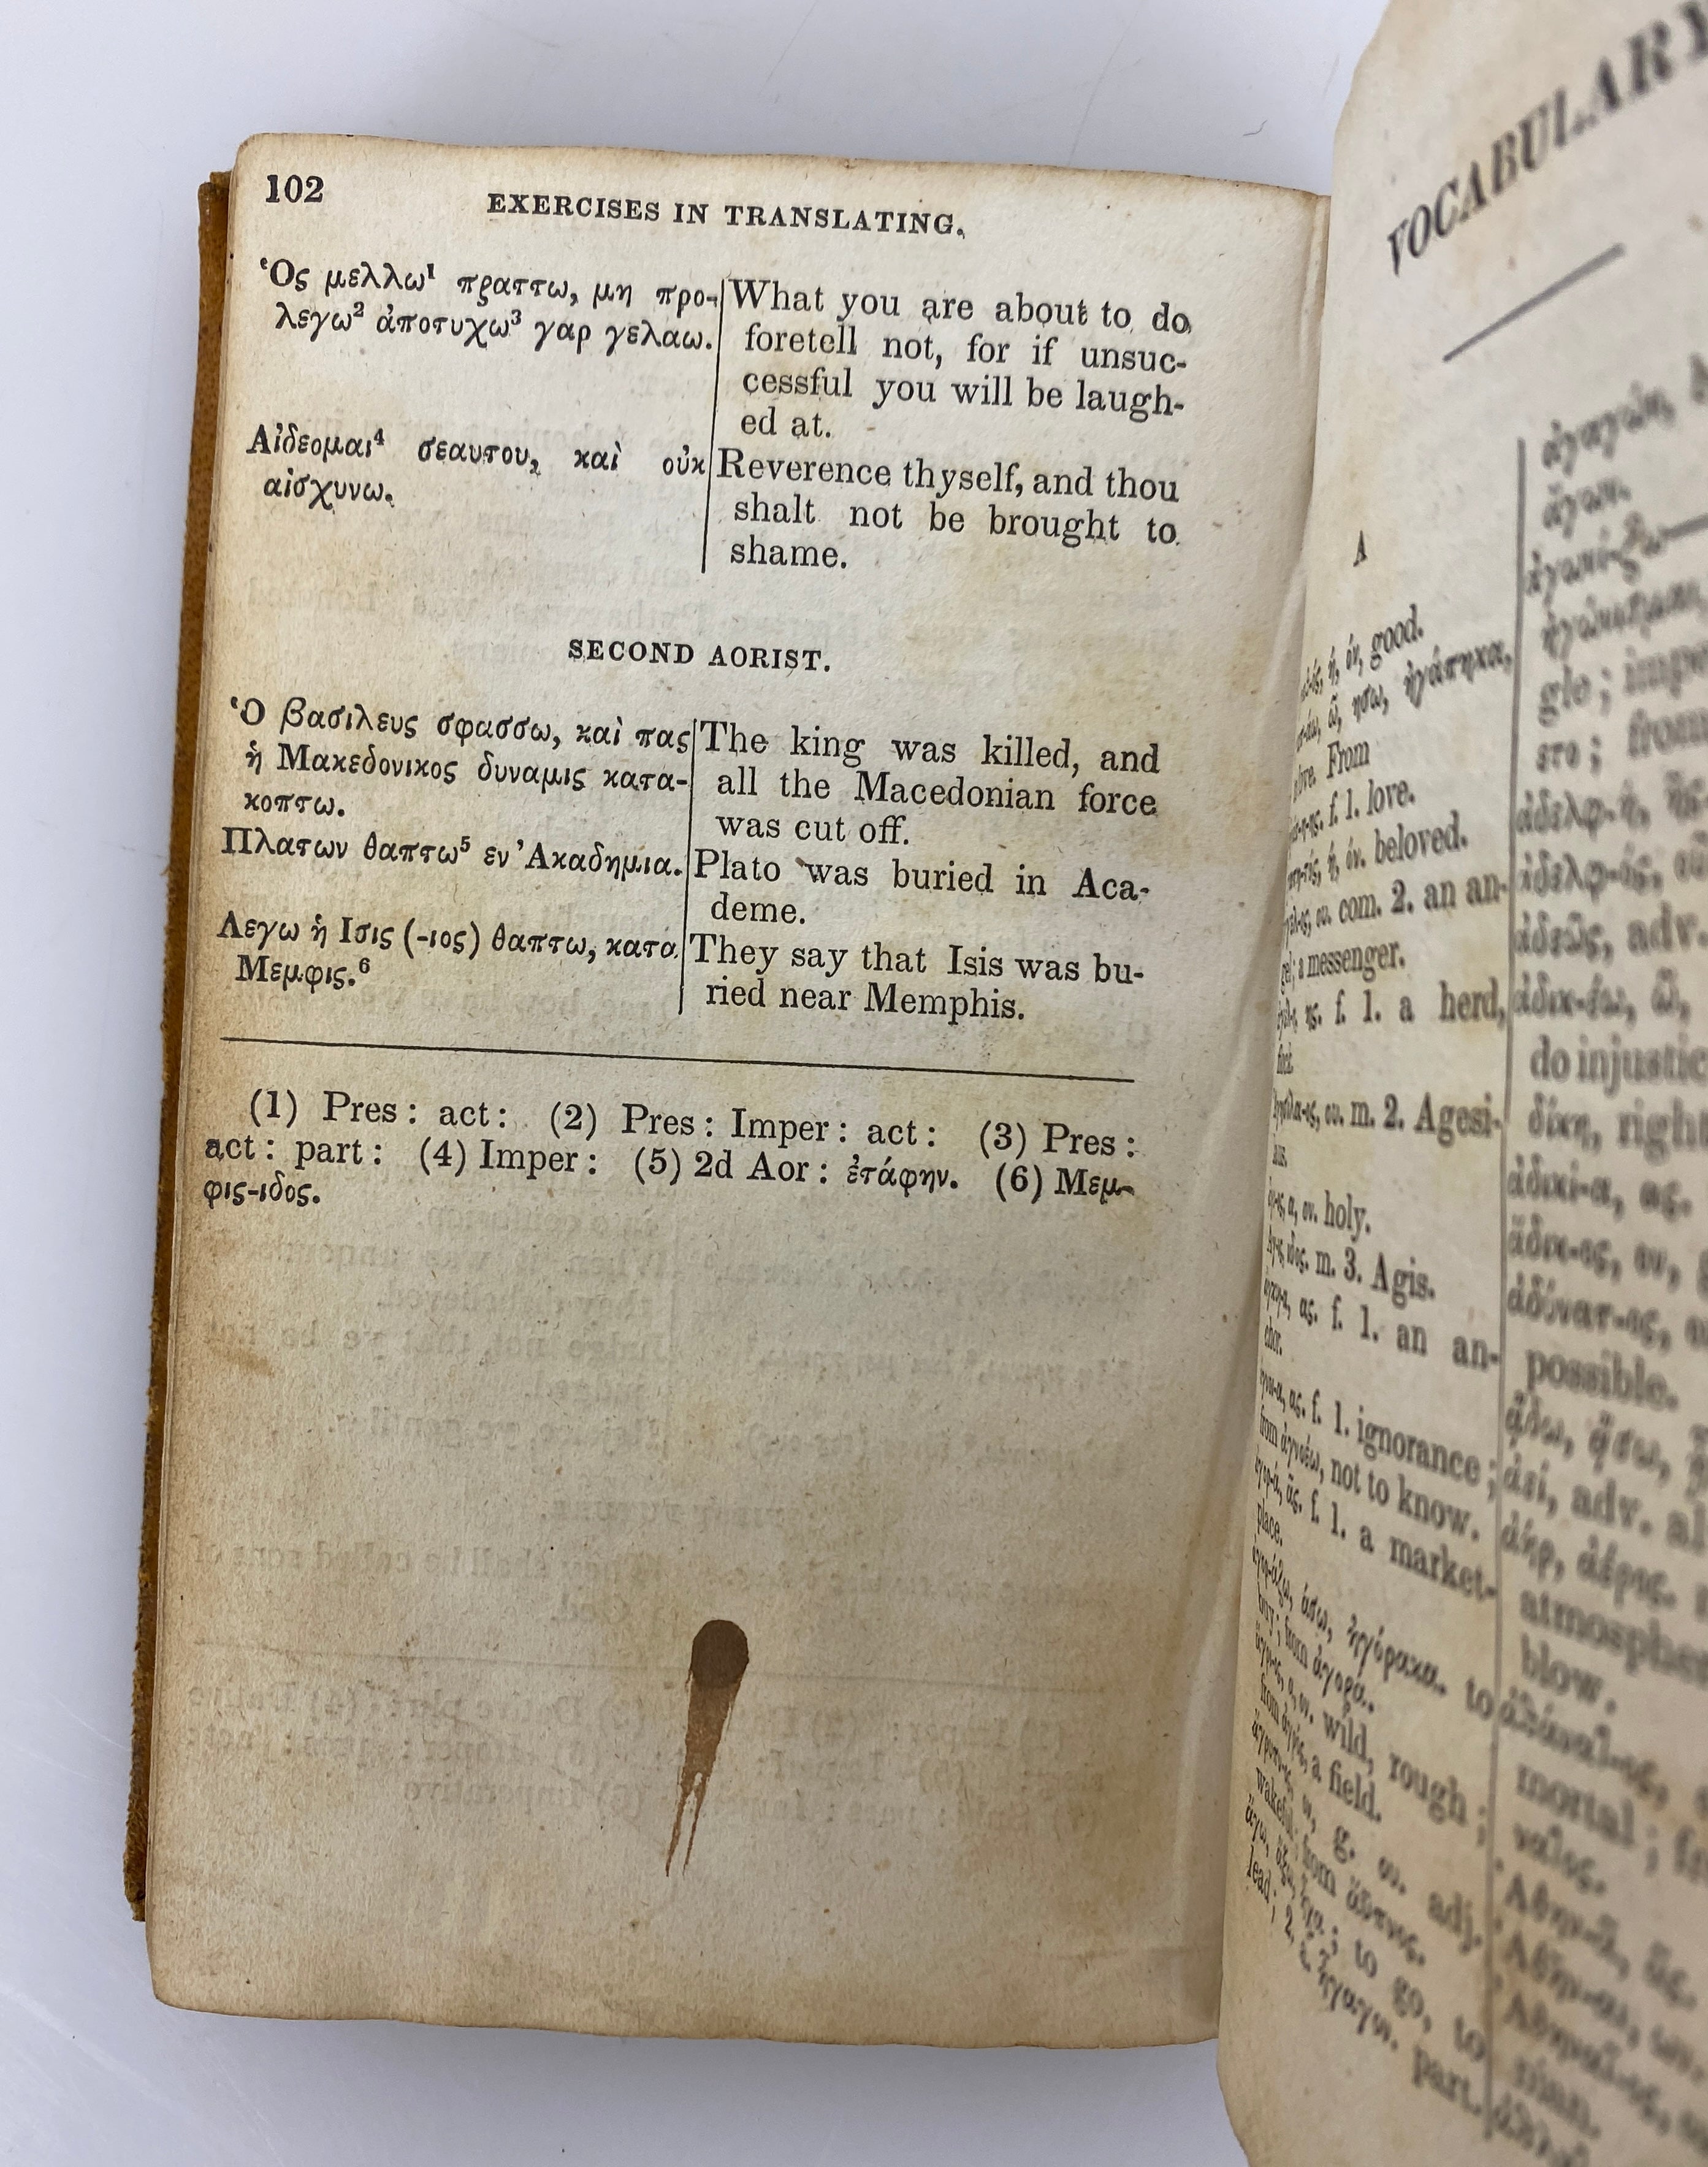 102
EXERCISES IN TRANSLATING.
Ὁς μελλω¹ πραττω, μη προ-
λεγω² ἀποτυχω³ γαρ γελαω.
What you are about to do
foretell not, for if unsuc-
cessful you will be laugh-
ed at.
Αἰδεομαι⁴ σεαυτου, καὶ οὐκ
αἰσχυνω.
Reverence thyself, and thou
shalt not be brought to
shame.
SECOND AORIST.
Ὁ βασιλευς σφασσω, καὶ πας
ἡ Μακεδονικος δυναμις κατα-
κοπτω.
The king was killed, and
all the Macedonian force
was cut off.
Πλατων θαπτω⁵ εν Ἀκαδημια.
Plato was buried in Aca-
deme.
Λεγω ἡ Ισις (-ιος) θαπτω, κατα
Μεμφις.⁶
They say that Isis was bu-
ried near Memphis.
(1) Pres: act: (2) Pres: Imper: act: (3) Pres:
act: part: (4) Imper: (5) 2d Aor: ἐτάφην. (6) Μεμ-
φις-ιδος.
VOCABULARY
A
ή, όν, good.
ῶ, ησω, ἠγάπηκα,
From
f. 1. love.
ή, όν. beloved.
ου. com. 2. an an-
gel; a messenger.
ης. f. 1. a herd,
ου. m. 2. Agesi-
α, ον. holy.
ιδος. m. 3. Agis.
ας. f. 1. an an-
chor.
ας. f. 1. ignorance;
from ἀγνοέω, not to know.
ᾶς. f. 1. a market-
place.
άσω, ἠγόρακα. to
buy; from ἀγορά.
wild, rough;
from ἀγρός, a field.
g. ου. adj.
wakeful; from ὕπνος.
to go, to
lead; 2. part.
ἀγαγών,
ἄγαν.
from
ἀδελφ-ή, ῆς.
ἀδελφ-ός, οῦ
ἀδεῶς, adv.
ἀδικ-έω, ῶ,
do injustic
δίκη, right
ἀδικί-α, ας.
ἄδικ-ος, ον,
ἀδύνατ-ος,
possible.
ᾄδω, ᾄσω,
ἀεί, adv. al
ἀήρ, ἀέρος.
atmospher
blow.
mortal;